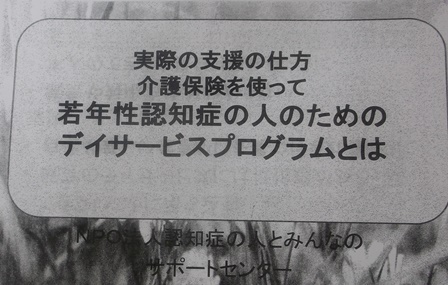 実際の支援の仕方
介護保険を使って
若年性認知症の人のための
デイサービスプログラムとは
NPO法人認知症の人とみんなの
サポートセンター